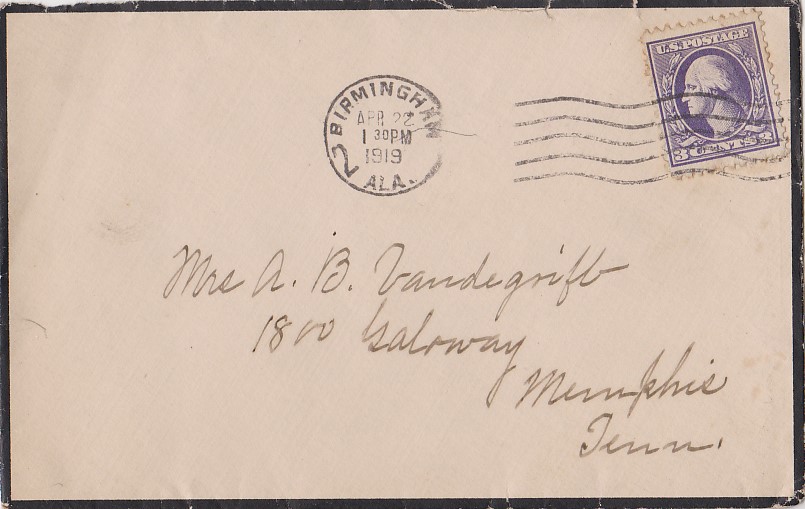 U.S. POSTAGE
3 CENTS 3
BIRMINGHAM
APR 22
1 30 PM
1919
ALA.
2
Mrs A. B. Vandegrift
1800 Galoway
Memphis
Tenn.